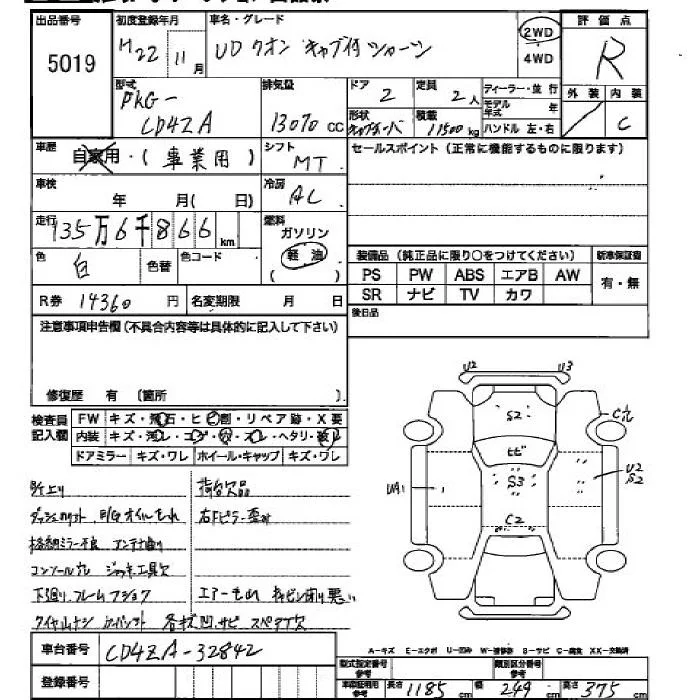 出品番号
5019
初度登録年月
H22年 11月
車名・グレード
UD クオン キャブ付シャーシ
2WD
4WD
評価点
R
外装 内装
/ C
型式
PKG-
CD4ZA
排気量
13070 cc
ドア
2
定員
2人
形状
積載
11500 kg
ディーラー・並行
モデル年式 年
ハンドル 左・右
車歴
自家用・(事業用)
シフト
MT
セールスポイント(正常に機能するものに限ります)
車検
年 月( 日)
冷房
AC
走行
135万6千866km
燃料
ガソリン
軽油
( )
色
白
色替
色コード
R券 14360円
名変期限 月 日
装備品(純正品に限り○をつけてください)
新車保証書
PS PW ABS エアB AW
有・無
SR ナビ TV カワ
後日品
注意事項申告欄(不具合内容等は具体的に記入して下さい)
修復歴 有 〔箇所 〕
検査員
記入欄
FW キズ・飛石・ヒビ割・リペア跡・X要
内装 キズ・汚レ・コゲ・穴・スレ・ヘタリ・破レ
ドアミラー キズ・ワレ ホイール・キャップ キズ・ワレ
荷台欠品
E/G オイルもれ
右Fピラー歪み
格納ミラー不良 アンテナ曲り
コンソール穴 ジャッキ工具欠
下廻り、フレームサビ
エアーもれ キャビン閉り悪い
各状凹、サビ スペタイ欠
U2 U3
S2
C穴
ヒビ
UA1
S3
U2
S2
C2
車台番号
CD4ZA-32842
登録番号
A-キズ E-エクボ U-凹み W-補修跡 S-サビ C-腐食 XX-交換済
型式指定番号
参考
類別区分番号
参考
車検証明用
参考
長さ 1185cm
幅 249cm
高さ 375cm